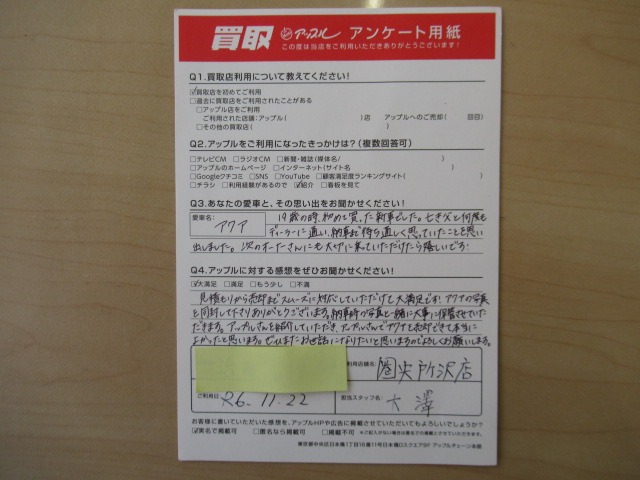 買取 アップル アンケート用紙
この度は当店をご利用いただきありがとうございます！
Q1.買取店利用について教えてください！
☑買取店を初めてご利用
□過去に買取店をご利用されたことがある
□アップル店をご利用
ご利用された店舗：アップル( )店 アップルへのご売却( 回目)
□その他の買取店( )
Q2.アップルをご利用になったきっかけは？(複数回答可)
□テレビCM □ラジオCM □新聞・雑誌(媒体名/ )
□アップルのホームページ □インターネット(サイト名 )
□Googleクチコミ □SNS □YouTube □顧客満足度ランキングサイト( )
□チラシ □利用経験があるので ☑紹介 □看板を見て
Q3.あなたの愛車と、その思い出をお聞かせください！
愛車名: アクア 19歳の時、初めて買った新車でした。亡き父と何度も
ディーラーに通い、納車まで待ち遠しく思っていたことを思い
出しました。次のオーナーさんにも大切に乗っていただけたら嬉しいです！
Q4.アップルに対する感想をぜひお聞かせください！
☑大満足 □満足 □もう少し □不満
見積もりから売却までスムーズに対応していただけて大満足です！アクアの写真
を同封して下さりありがとうございます。納車時の写真と一緒に大事に保管させていた
だきます。アップルさんを紹介していただき、アップルさんでアクアを売却できて本当に
よかったと思います。ぜひまたお世話になりたいと思いますのでよろしくお願いします。
利用店舗名: 圏央所沢店
ご利用日 R6.11.22 担当スタッフ名: 大澤
お客様に書いていただいた感想を、アップルHPや広告に掲載させていただいてもよろしいでしょうか？
☑実名で掲載可 □匿名なら掲載可 □掲載不可 ※ご記入がない場合は匿名での掲載とさせていただきます。
東京都中央区日本橋1丁目16番11号日本橋Dスクエア8F アップルチェーン本部